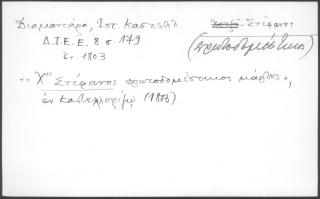 Διαμαντάρα, Ιστ. Καστελλ.
Δ.Ι.Ε.Ε. 8 σ. 179
ἔτ. 1803
Χατζῆ-Στέφανος
(πρωτοδομέστικος)
"Χ" Στέφανος πρωτοδομέστικος μάρτυς",
ἐν Καστελλορίζῳ (1803).